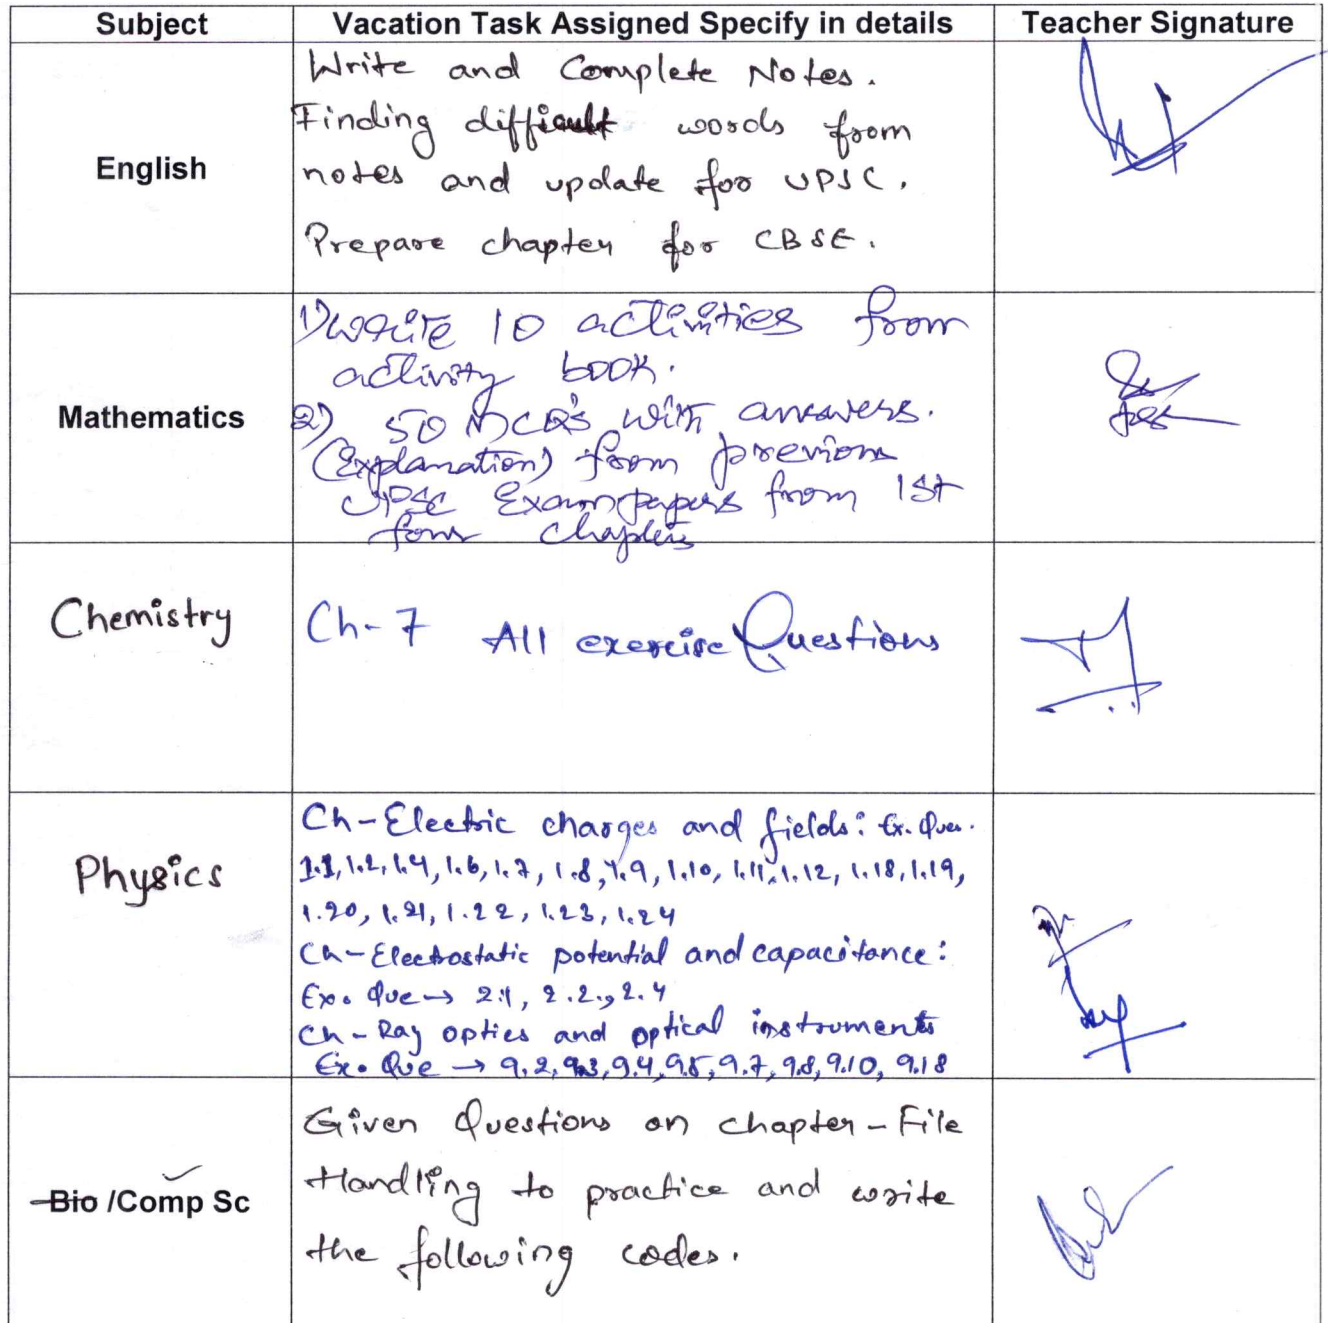 Subject Vacation Task Assigned Specify in details Teacher Signature
English
Write and Complete Notes.
Finding difficult words from
notes and update for UPSC.
Prepare chapter for CBSE.
Mathematics
1) write 10 activities from
activity book.
2) 50 MCQ's with answers.
(Explanation) from previous
UPSC Exam papers from 1st
four chapters
Chemistry
Ch-7 All exercise Questions
Physics
Ch-Electric charges and fields: Ex. Ques.
1.1, 1.2, 1.4, 1.6, 1.7, 1.8, 1.9, 1.10, 1.11, 1.12, 1.18, 1.19,
1.20, 1.21, 1.22, 1.23, 1.24
Ch-Electrostatic potential and capacitance:
Ex. Que → 2.1, 2.2, 2.4
Ch-Ray optics and optical instruments
Ex. Que → 9.2, 9.3, 9.4, 9.5, 9.7, 9.8, 9.10, 9.18
Bio /Comp Sc
Given Questions on chapter - File
Handling to practice and write
the following codes.